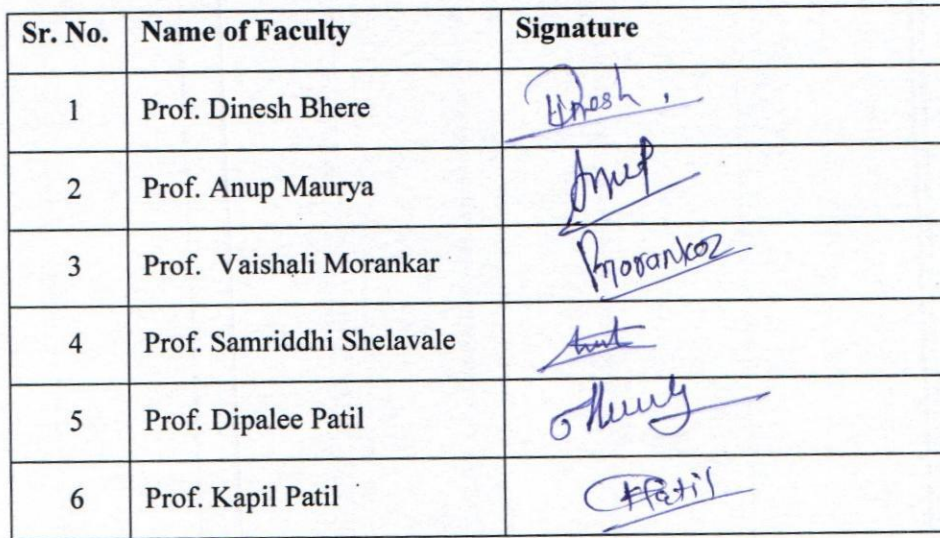 Sr. No. Name of Faculty Signature
1 Prof. Dinesh Bhere Dinesh
2 Prof. Anup Maurya Anup
3 Prof. Vaishali Morankar Pmorankar
4 Prof. Samriddhi Shelavale
5 Prof. Dipalee Patil
6 Prof. Kapil Patil KPatil